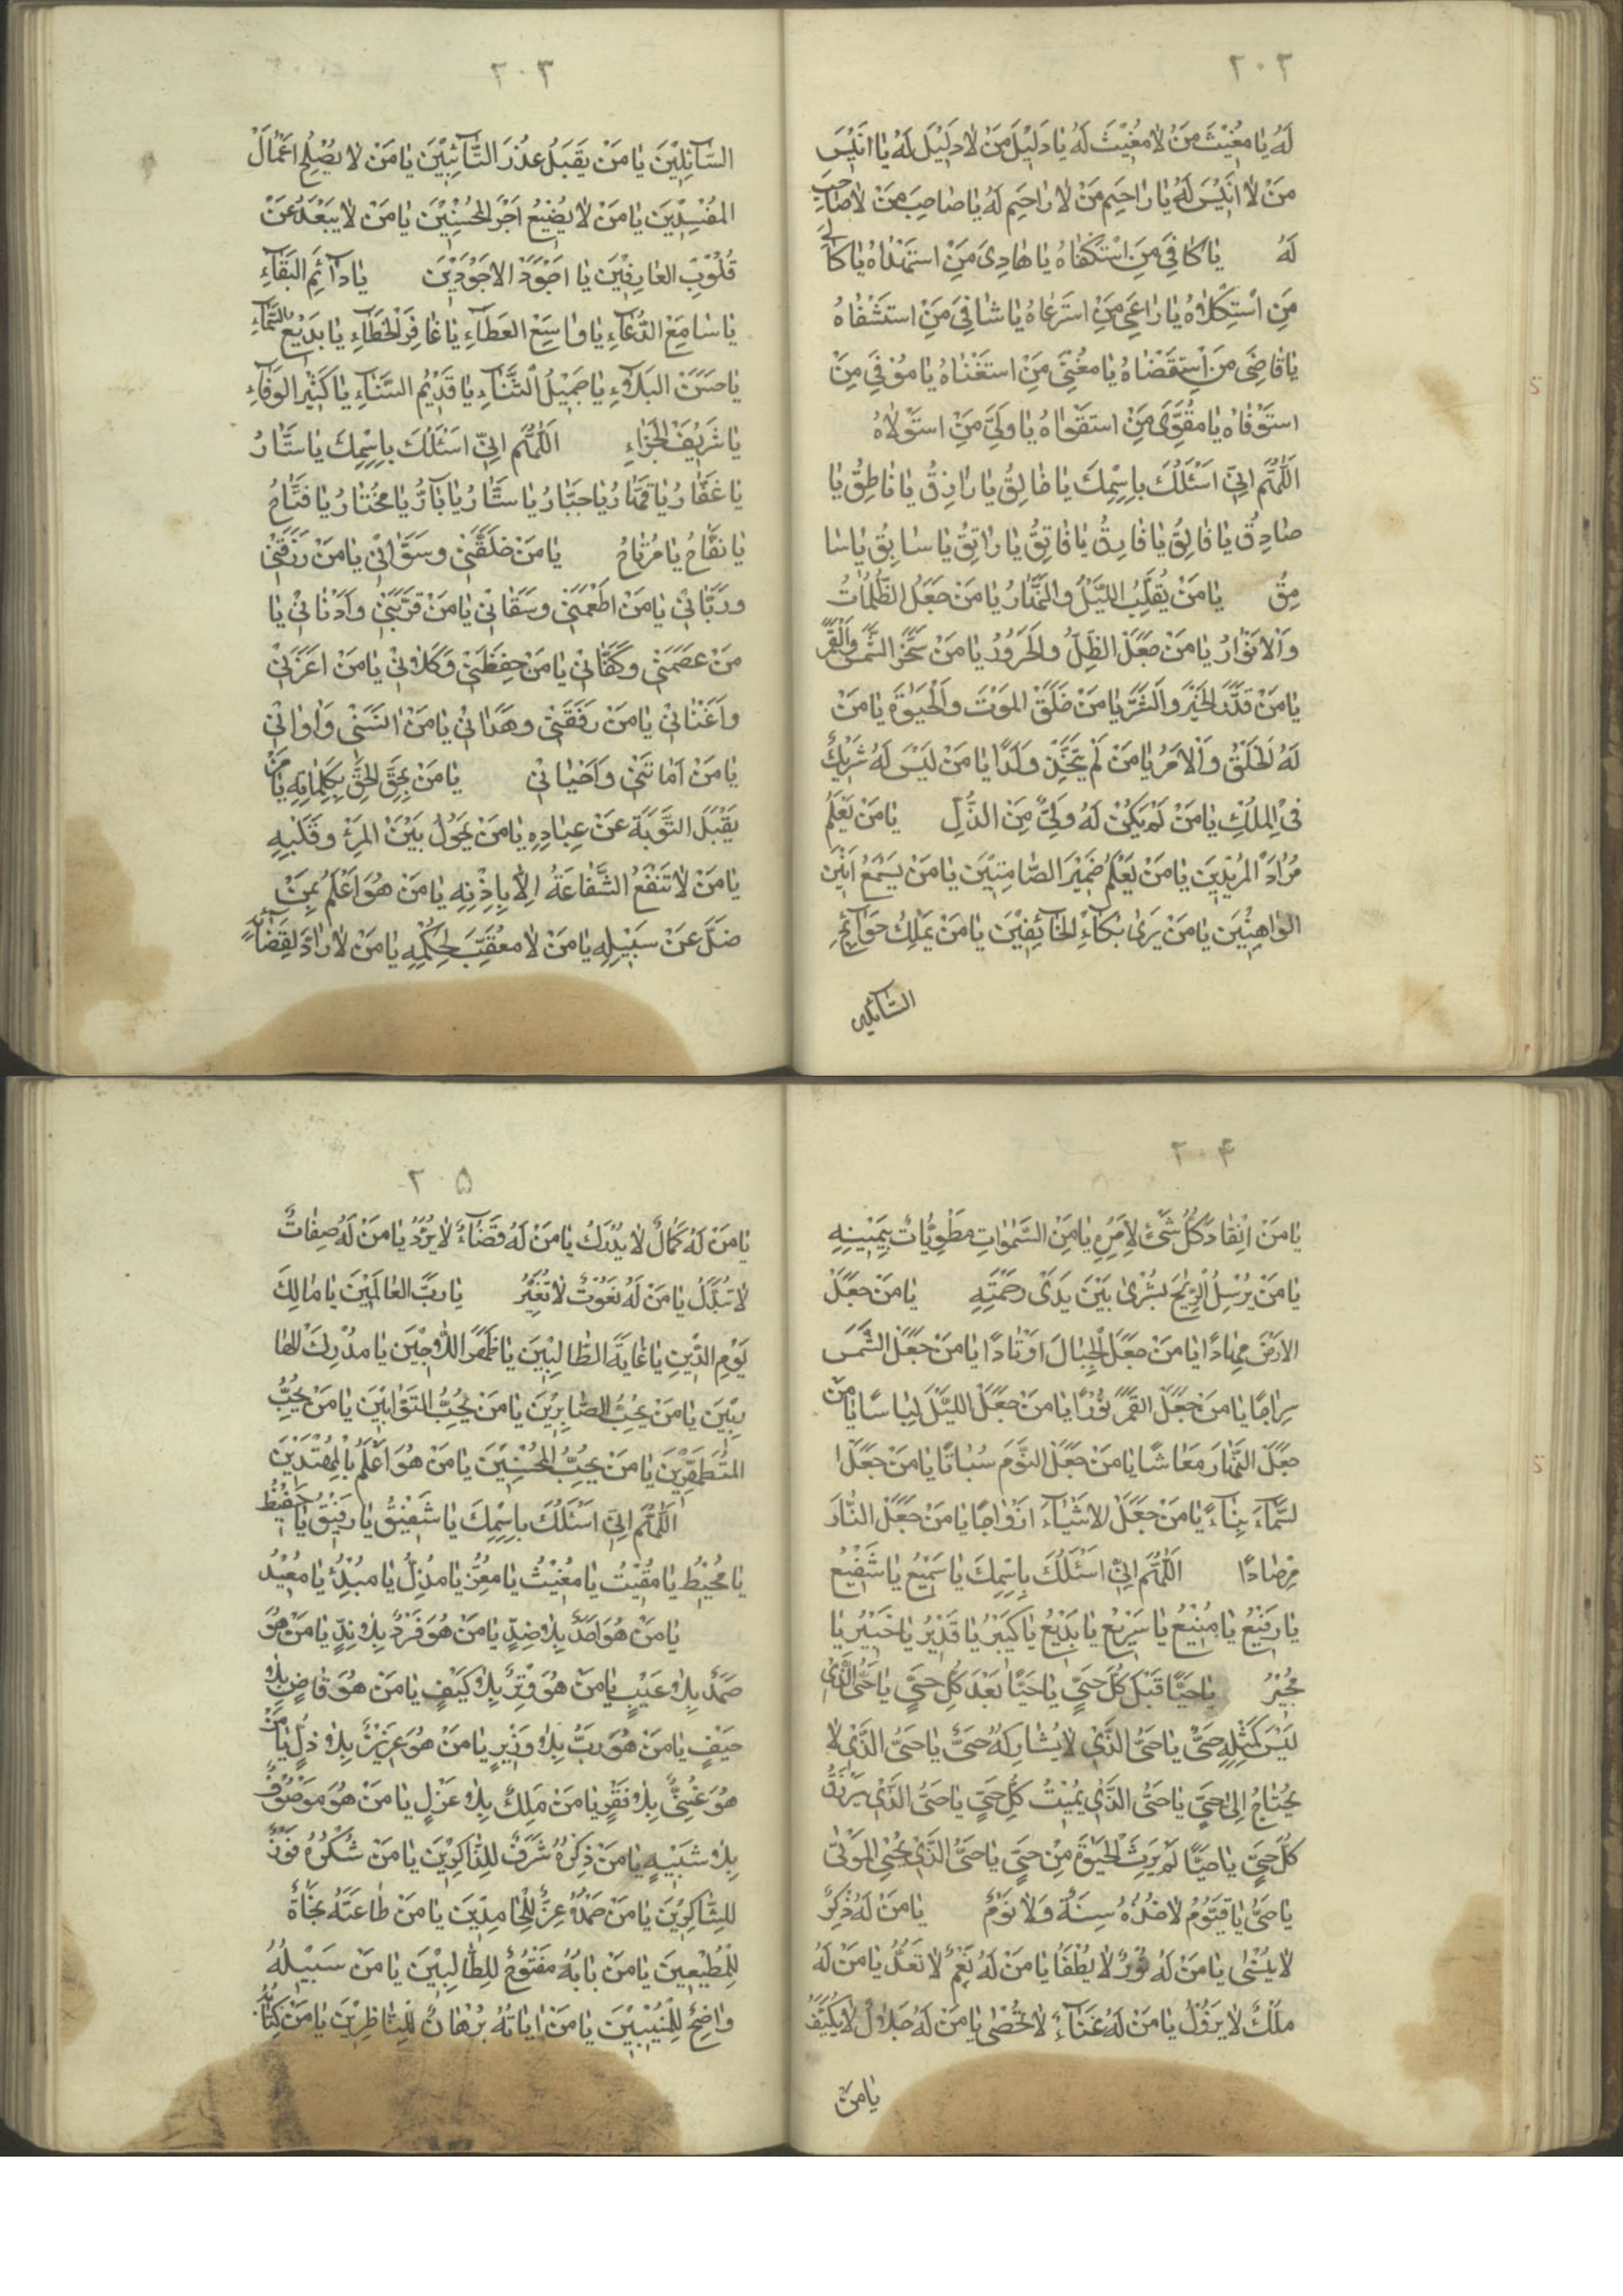 ٢٠٢
لَهُ يٰا مُغيْثَ مَنْ لٰا مُغيْثَ لَهُ يٰا دَليْلَ مَنْ لٰا دَليْلَ لَهُ يٰا انَيْسَ
مَنْ لٰا انَيْسَ لَهُ يٰا رٰاحِيَم مَنْ لٰا رٰاحَيِم لَهُ يٰا صٰاحِبَ مَنْ لٰا صٰاحِبَ
لَهُ يٰا كٰافِيَ مَنِ اسْتَكْفٰاهُ يٰا هٰادِيَ مَنِ استَهْدٰاهُ يٰا كٰالِيَ
مَنِ اسْتَكِلْاٰهُ يٰا رٰاعَيِ مَنِ استَرعٰاهُ يٰا شٰافِيَ مَنِ استَشْفٰاهُ
يٰا قٰاضِيَ مَنِ اسْتِقَضْاهُ يٰا مُغنِيَ مَنِ استَغْنٰاهُ يٰا مُوْفِيَ مَنِ
استَوْفٰاهُ يٰا مُقَوِّيَ مَنِ استَقَوْاهُ يٰا وَليَّ مَنِ استَوْلٰاهُ
اَللّٰهُمَّ اِنيّ اَسْئَلُكَ باِسِمِكَ يٰا خٰالِقُ يٰا رٰازِقُ يٰا نٰاطِقُ يٰا
صٰادِقُ يٰا فٰالِقُ يٰا فٰارِقُ يٰا فٰاتِقُ يٰا رٰاتِقُ يٰا سٰابِقُ يٰا سٰا
مِقُ يٰا مَنْ يُقَلِّبُ اللَيْلَ وَالنَّهٰارُ يٰا مَنْ جَعَلَ الظُّلُمٰاتُ
وَاْلانَوْارُ يٰا مَنْ جَعَلَ الظِلَّ وَالحَرَوُرُ يٰا مَنْ سَخَّرَ الشَّمْسَ وَالْقَمَرَ
يٰا مَنْ قَدَّرَ الخَيْرَ وَالشَرَّ يٰا مَنْ خَلَقَ المَوْتَ وَالْحَيٰوةَ يٰا مَنْ
لَهُ الخَلْقُ وَاْلامَرُ يٰا مَنْ لَمْ يَتَّخِذْ وَلَدًا يٰا مَنْ لَيْسَ لَهُ شَرْيكٌ
فىِ الْملُكِ يٰا مَنْ لَمْ يَكُنْ لَهُ وَلِيٌّ مِنَ الذُّلِ يٰا مَنْ يَعْلَمُ
مُرٰادَ المُريْديَنَ يٰا مَنْ يَعْلَمُ ضَميْرَ الصّٰامِتيْنَ يٰا مَنْ يَسْمَعُ اَنَيْنَ
الوٰاهِنيْنَ يٰا مَنْ يَرىٰ بُكٰآءَ الخٰآئِفيْنَ يٰا مَنْ يَملِكُ حَوٰآئِجَ
السّٰآئلين
٢٠٣
السّٰآئِليْنَ يٰا مَنْ يَقَبَلُ عذُرَ التّٰآئِبيْنَ يٰا مَنْ لٰا يصُلِحُ اَعْمٰالَ
المُفْسِديْنَ يٰا مَنْ لٰا يُضيْعُ اَجْرَ المُحْسِنيْنَ يٰا مَنْ لٰا يَبْعَدُ عَنْ
قُلوُبِ العٰارِفيْنَ يٰا اَجْوَدَ الاَجْوَديْنَ يٰا دٰآئِمَ البَقٰآءِ
يٰا سٰامِعَ الدُّعٰآءِ يٰا وٰاسِعَ العَطٰآءِ يٰا غٰافِرَ الخَطٰآءِ يٰا بَديْعَ السَّمٰآءِ
يٰا حَسَنَ البَلٰاۤءِ يٰا جَميْلَ الثَّنٰآءِ يٰا قَديْمَ السَّنٰآءِ يٰا كَثيْرَ الوَفٰآءِ
يٰا شَريْفَ الجَزٰاءِ اَللّٰهُمَّ اِنيّ اَسْئَلُكَ باِسِمِكَ يٰا سَتّٰارُ
يٰا غَفّٰارُ يٰا قَهّٰارُ يٰا جَبّٰارُ يٰا سَتّٰارُ يٰا بٰآرُّ يٰا مُخْتٰارُ يٰا فَتّٰاحُ
يٰا نفَّاحُ يٰا مُرْتٰاحُ يٰا مَنْ خَلَقَنيْ وسَوّٰانيْ يٰا مَنْ رَزَقَنيْ
ورَبّٰانيْ يٰا مَنْ اطَعْمَنيْ وسَقٰانيْ يٰا مَنْ قَرَّبَنيْ وَاَدْنٰانيْ يٰا
مَنْ عَصَمَنيْ وكَفٰانيْ يٰا مَنْ حِفِظَنيْ وَكَلٰاْنيْ يٰا مَنْ اَعَزَّنيْ
وَاَغَنْٰانيْ يٰا مَنْ رفَقَّنيْ وهَدٰانيْ يٰا مَنْ اٰنَسَنىْ وَاٰوٰانيْ
يٰا مَنْ اَمٰاتَنيْ وَاَحْيٰانيْ يٰا مَنْ يحُقَّ الحَقَّ بِكَلِمٰاتِهِ يٰا مَنْ
يَقْبَلُ التَّوَبَةَ عَنْ عِبٰادِهِ يٰا مَنْ يَحوُلُ بَيْنَ المَرْءِ وقَلْبِهِ
يٰا مَنْ لٰا تَنْفَعُ الشَّفٰاعَةُ اِلّٰا بِاِذْنِهِ يٰا مَنْ هُوَ اَعْلَمُ بمَنْ
ضَلَّ عَنْ سَبيْلِهِ يٰا مَنْ لٰا مُعَقِّبَ لحِكْمِهِ يٰا مَنْ لٰا رٰادَّ لِقَضٰآئِهِ
٢٠۴
يٰا مَنْ اِنْقٰادَ كُلُّ شَئٍ لاَِمَرِهِ يٰا مَنِ السَّمٰوٰاتِ مَطْوِيّٰاتٌ بِيَميْنِهِ
يٰا مَنْ يُرْسِلُ الرِيّٰحَ بُشْرىٰ بَيْنَ يَدَىْ رحَمْتَهِ يٰا مَنْ جَعَلَ
الاَرْضَ مِهٰادًا يٰا مَنْ جَعَلَ الْجِبٰالَ اَوْتٰادًا يٰا مَنْ جَعَلَ الشَّمْسَ
سِرٰاجًا يٰا مَنْ جَعَلَ القَمَرَ نوُرًا يٰا مَنْ جَعَلَ اللَيْلَ لِبٰاسًا يٰا مَنْ
جَعَلَ النَّهٰارَ مَعٰاشًا يٰا مَنْ جَعَلَ النَّوَمَ سُبٰاتًا يٰا مَنْ جَعَلَ ا
لسَّمٰآءَ بِنٰاءً يٰا مَنْ جَعَلَ الاَشْيٰآءَ اَزْوٰاجًا يٰا مَنْ جَعَلَ النّٰارَ
مِرْصٰادًا اَللّٰهُمَّ اِنيّ اَسْئَلُكَ بِاسِمِكَ يٰا سَميْعُ يٰا شَفيْعُ
يٰا رَفيْعُ يٰا مَنيْعُ يٰا سَريْعُ يٰا بَديْعُ يٰا كَبيْرُ يٰا قَديْرُ يٰا خَبيْرُ يٰا
مُجيْرُ يٰا حَيًّا قَبْلَ كُلِّ حَيٍّ يٰا حَيًّا بَعْدَ كُلِ حَيٍّ يٰا حَيُّ الَّذى
لَيْسَ كَمِثْلِهِ حَيٌّ يٰا حَيُّ الذَّيْ لٰا يُشٰارِكهُ حَيٌّ يٰا حَيُّ الذَّيْ لٰا
يَحْتٰاجُ اِلىٰ حَيٍّ يٰا حَيُّ الذَّيْ يُميْتُ كُلِّ حَيٍّ يٰا حَيُّ الذَّيْ يَرْزُقُ
كُلَّ حَيٍّ يٰا حَيًّا لَمْ يَرِثِ الحَيٰوةَ مِنْ حَيٍّ يٰا حَيُّ الذَّيْ يُحْيِ المَوْتىٰ
يٰا حَيُّ يٰا قَيّوُمُ لٰا تٰاخُذُهُ سِنَةٌ وَلٰا نَوْمٌ يٰا مَنْ لَهُ ذِكْرٌ
لٰا يُنْسٰى يٰا مَنْ لَهُ نوُرٌ لٰا يُطْفَأُ يٰا مَنْ لَهُ نِعَمٌ لٰا تعَدُّ يٰا مَنْ لَهُ
مُلْكٌ لٰا يَزوُلُ يٰا مَنْ لَهُ ثَنٰاۤءٌ لٰا يُحْصٰى يٰا مَنْ لَهُ جَلٰالٌ لٰا يُكَيَّفُ
يٰا مَنْ
٢٠۵
يٰا مَنْ لَهُ كَمٰالٌ لٰا يدُرَكُ يٰا مَنْ لَهُ قَضٰاۤءٌ لٰا يُرَدُّ يٰا مَنْ لَهُ صِفٰاتٌ
لٰا تُبَدَّلُ يٰا مَنْ لَهُ نعُوُتٌ لٰا تُغَيَّرُ يٰا رَبَّ العٰالَميْنَ يٰا مٰالِكَ
يَوْمِ الدّيْنِ يٰا غٰايَةَ الطّٰالِبيْنَ يٰا ظَهْرَ اللّٰاجيْنَ يٰا مُدْرِكَ الهٰا
رِبيْنَ يٰا مَنْ يحُبُّ الصّٰابِريْنَ يٰا مَنْ يُحِبُّ التَوّٰابيْنَ يٰا مَنْ يحُبُّ
المُتَطَهِّريْنَ يٰا مَنْ يُحِبُّ المُحْسِنيْنَ يٰا مَنْ هُوَ اَعْلَمُ باِلمُهْتَديْنَ
اَللّٰهُمَّ اِنيّ اَسْئَلُكَ باِسِمِكَ يٰا شَفيْقُ يٰا رَفيْقُ يٰا حَفيْظُ
يٰا مُحيْطُ يٰا مُقيْتُ يٰا مُغيْثُ يٰا مُعِزُّ يٰا مُذِلُّ يٰا مُبْدِئُ يٰا مُعيْدُ
يٰا مَنْ هُوَ اَحَدٌ بِلٰا ضِدٍّ يٰا مَنْ هُوَ فَرْدٌ بِلٰا نِدٍّ يٰا مَنْ هُوَ
صَمَدٌ بِلٰا عَيْبٍ يٰا مَنْ هُوَ وِتْرٌ بِلٰا كَيْفٍ يٰا مَنْ هُوَ قٰاضٍ بِلٰا
حَيْفٍ يٰا مَنْ هُوَ رَبٌّ بِلٰا وَزيْرٍ يٰا مَنْ هُوَ عَزيْزٌ بِلٰا ذُلٍّ يٰا مَنْ
هُوَ غَنِيٌّ بِلٰا فَقْرٍ يٰا مَنْ مَلِكٌ بِلٰا عَزْلٍ يٰا مَنْ هُوَ مَوْصوُفٌ
بِلٰا شَبيْهٍ يٰا مَنْ ذِكْرُهُ شَرَفٌ للِذّٰاكِريْنَ يٰا مَنْ شُكْرُهُ فَوْزٌ
للِشّٰاكِريْنَ يٰا مَنْ حَمْدُهُ عِزٌّ للِحٰامِديْنَ يٰا مَنْ طٰاعَتَهُ نجَٰاةٌ
للِمُطيْعيَنَ يٰا مَنْ بٰابُهُ مَفْتوُحٌ للِطّٰالِبيْنَ يٰا مَنْ سَبيْلُهُ
وٰاضِحٌ للِمُنيْبيْنَ يٰا مَنْ اٰيٰاتُهُ بُرْهٰانٌ للِنّٰاظِريْنَ يٰا مَنْ كِتٰابُهُ